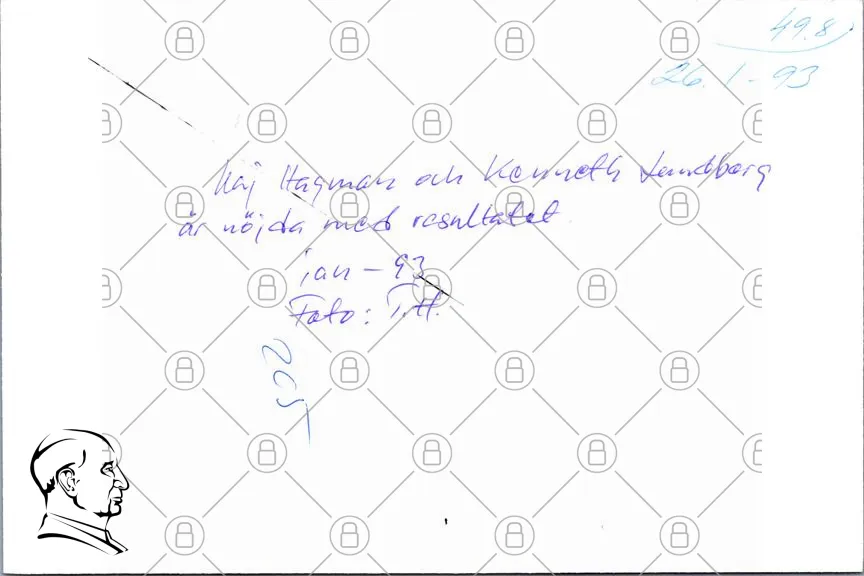 49.8
26.1-93
Kaj Hagman och Kenneth Lundberg
är nöjda med resultatet.
jan-93
Foto: T.H.
205